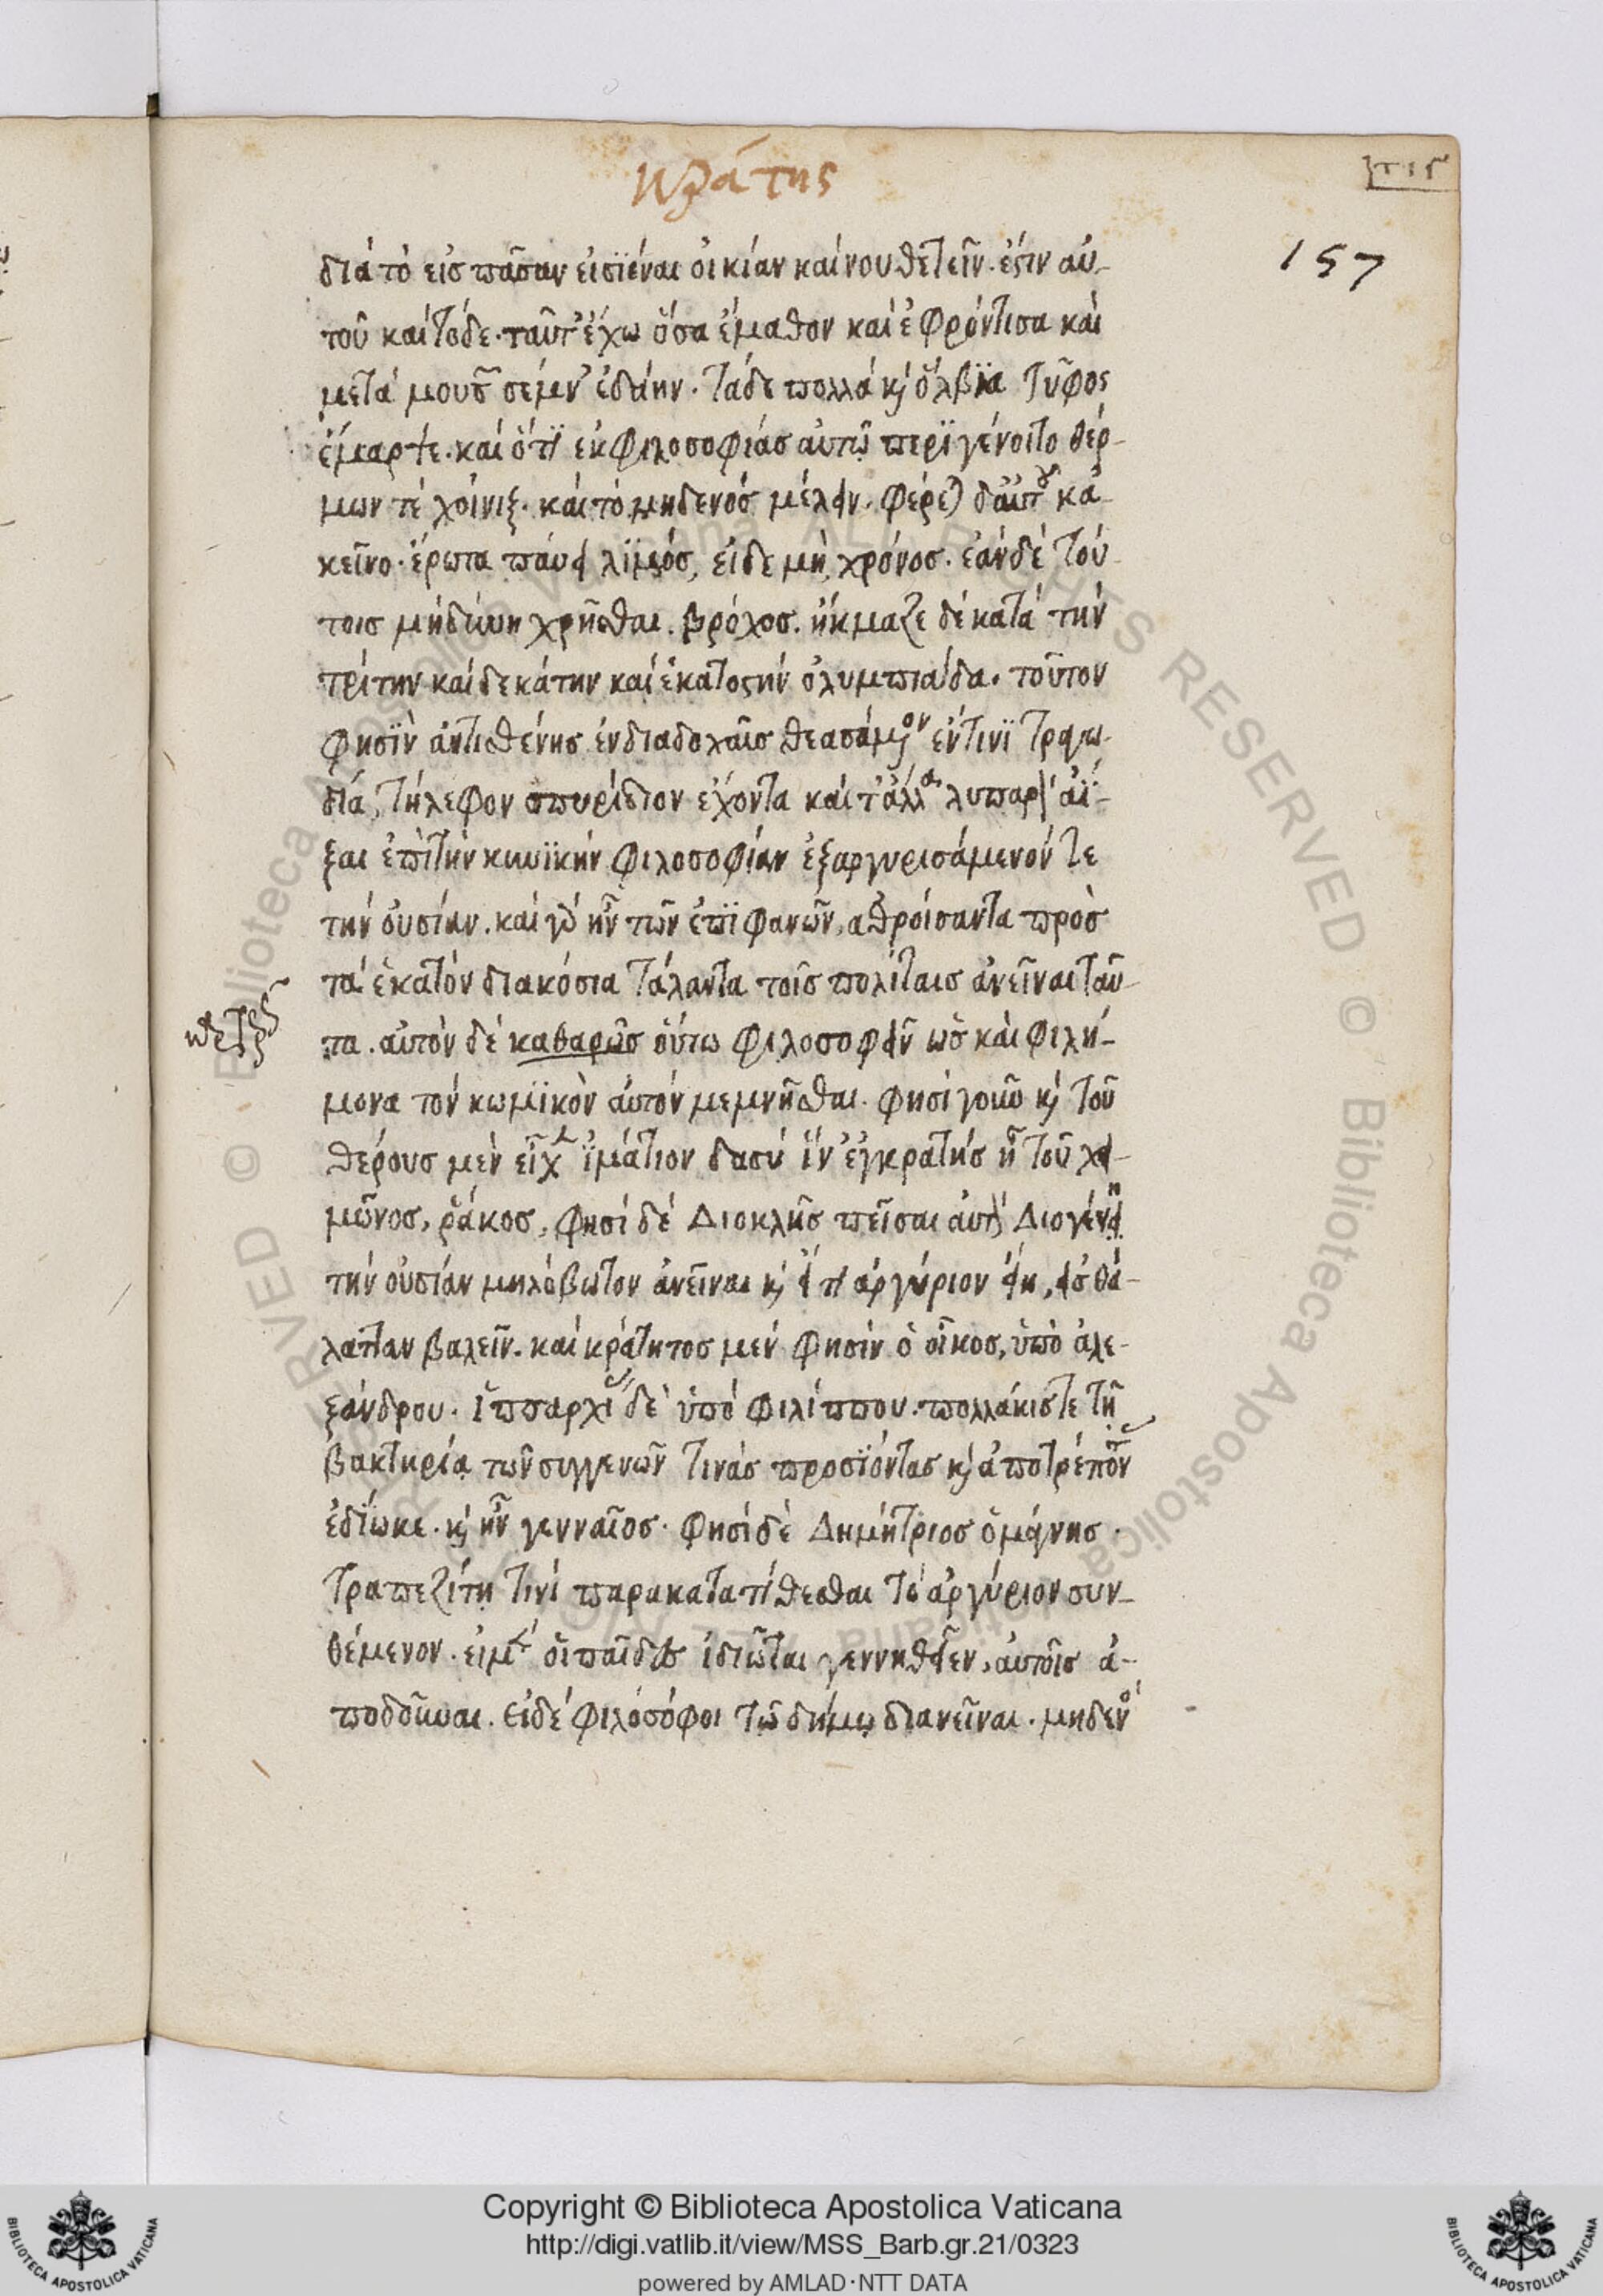 κράτης
157
διὰ τὸ εἰς πᾶσαν εἰσϊέναι οἰκίαν καὶ νουθετεῖν. ἔστιν αὐ-
τοῦ καὶ τόδε. ταῦτ' ἔχω ὅσα ἔμαθον καὶ ἐφρόντισα καὶ
μετὰ μουσῶν σέμν' ἐδάην. τὰ δὲ πολλὰ κ ὄλβϊα τῦφος
ἔμαρψε. καὶ ὅτϊ ἐκ φιλοσοφίας αὐτῷ περϊγένοιτο θέρ-
μων τὲ χοῖνιξ. καὶ τὸ μηδενὸς μέλειν. φέρεται δ' αὐτοῦ κἀ-
κεῖνο. ἔρωτα παύει λϊμός, εἰ δὲ μὴ, χρόνος. ἐὰν δὲ τού-
τοις μὴ δύνῃ χρῆσθαι. βρόχος. ἤκμαζε δὲ κατὰ τὴν
τρίτην καὶ δεκάτην καὶ ἑκατοστὴν ὀλυμπιάδα. τοῦτον
φησϊὶν ἀντισθένης ἐν διαδοχαῖς θεασάμενον ἔν τινϊ τραγω-
δία, τήλεφον σπυρίδιον ἔχοντα καὶ τἆλλα λυπαρὸν ἀΐ-
ξαι ἐπὶ τὴν κυνϊκὴν φιλοσοφίαν ἐξαργυρισάμενόν τε
τὴν οὐσίαν. καὶ γὰρ ἦν τῶν ἐπϊφανῶν, ἀθροίσαντα πρὸς
τὰ ἑκατὸν διακόσια τάλαντα τοῖς πολίταις ἀνεῖναι ταῦ-
τα. αὐτὸν δὲ καθαρῶς οὕτω φιλοσοφεῖν ὡς καὶ φιλή-
μονα τὸν κωμϊκὸν αὐτὸν μεμνῆσθαι. φησὶ γοῦν κ τοῦ
θέρους μὲν εἶχεν ϊμάτιον δασὺ ἵν' ἐγκρατὴς ἦ τοῦ χει-
μῶνος, ῥάκος, φησὶ δὲ Διοκλῆς πεῖσαι αὐτὸν Διογένην
τὴν οὐσίαν μηλόβωτον ἀνεῖναι κ εἴ τι ἀργύριον εἴη, εἰς θά-
λατταν βαλεῖν. καὶ κράτητος μέν φησὶν ὁ οἶκος, ὑπὸ ἀλε-
ξάνδρου. ἱππαρχίας δὲ ὑπὸ φιλίππου. πολλάκις τε τῇ
βακτηρίᾳ τῶν συγγενῶν τινὰς προσϊόντας κ ἀποτρέποντας
ἐδϊωκε. κ ἦν γενναῖος. φησὶ δὲ Δημήτριος ὁ μάγνης.
τραπεζίτῃ τινὶ παρακατατίθεσθαι τὸ ἀργύριον συν-
θέμενον. εἰ μὲν οἱ παῖδες ἰδιῶται γεννηθεῖεν, αὐτοῖς ἀ-
ποδοῦναι. εἰ δὲ φιλόσοφοι τῷ δήμῳ διανεῖναι. μηδενὸ